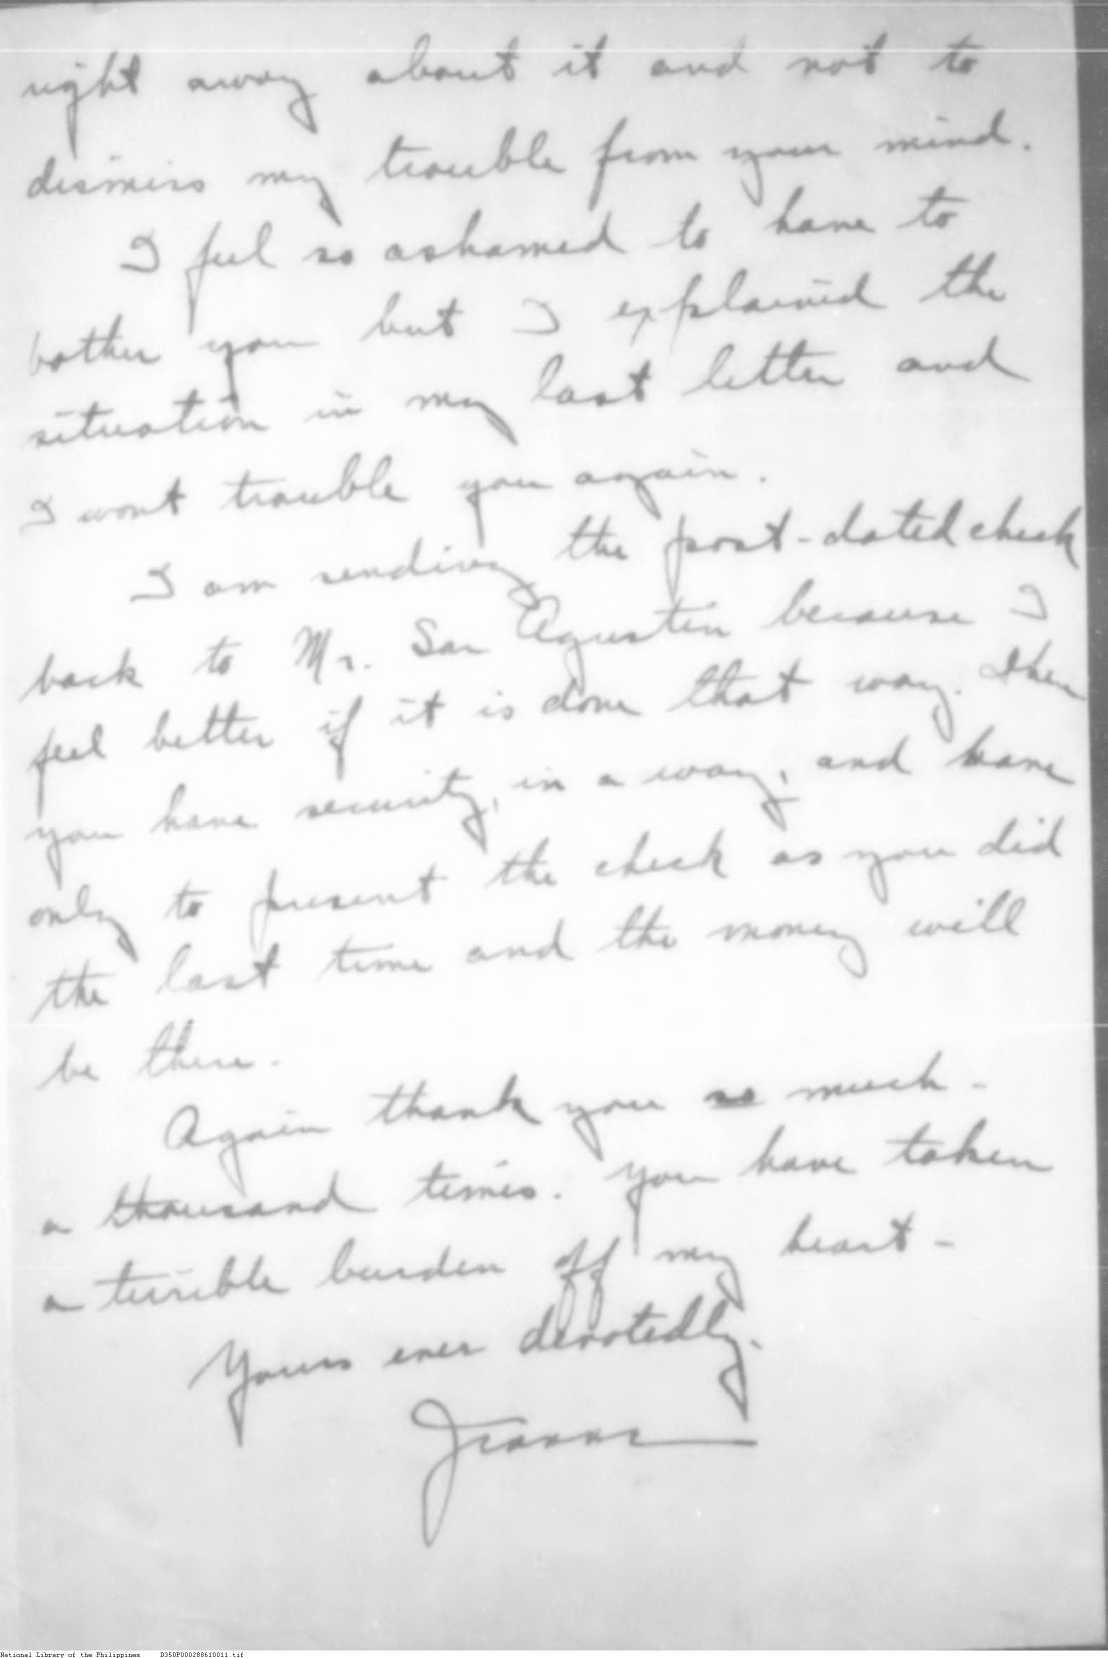 right away about it and not to
dismiss my trouble from your mind.
I feel so ashamed to have to
bother you but I explained the
situation in my last letter and
I wont trouble you again.
I am sending the post-dated check
back to Mr. San Agustin because I
feel better if it is done that way. Then
you have security, in a way, and have
only to present the check as you did
the last time and the money will
be there.
Again thank you so much -
a thousand times. You have taken
a terrible burden off my heart -
Yours ever devotedly,
National Library of the Philippines D350P000288610011.tif